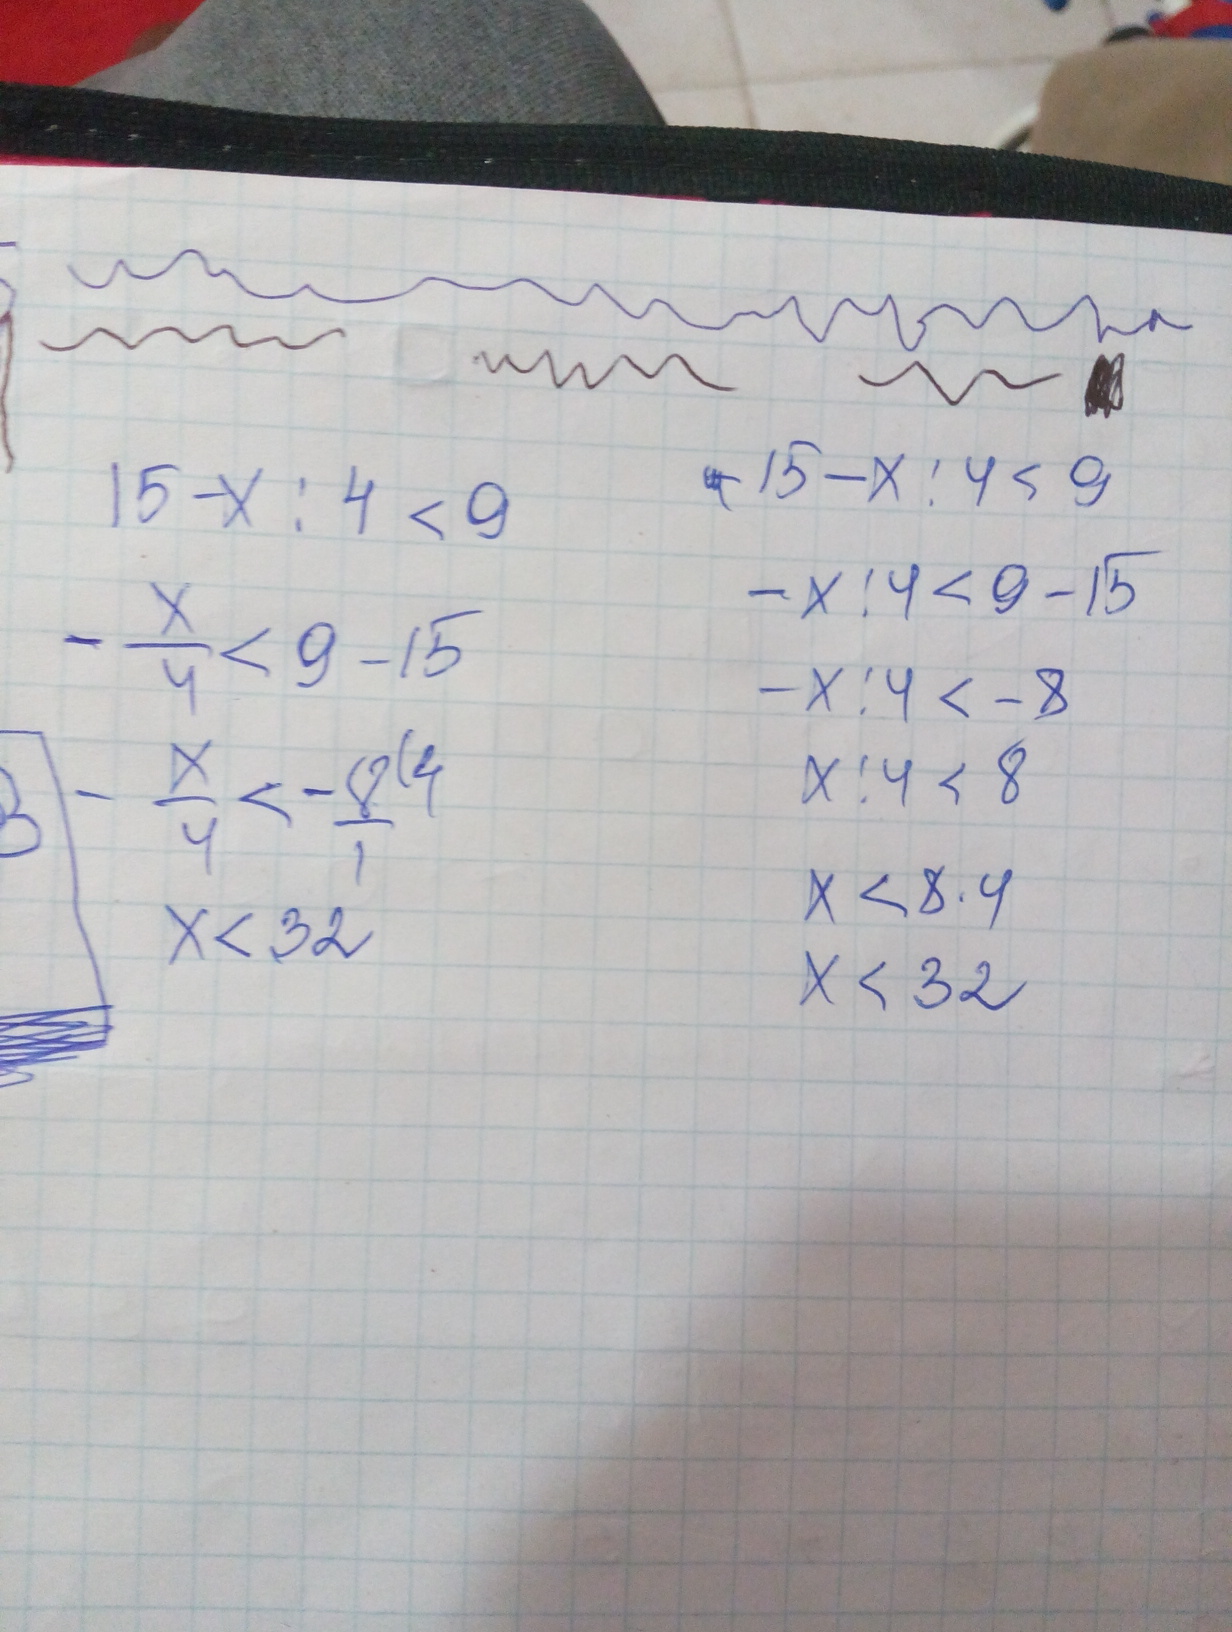 15-x:4<9
- x/4 < 9-15
- x/4 < - 8/1 (4
x<32
15-x:4<9
-x:4<9-15
-x:4<-8
x:4<8
x<8·4
x<32